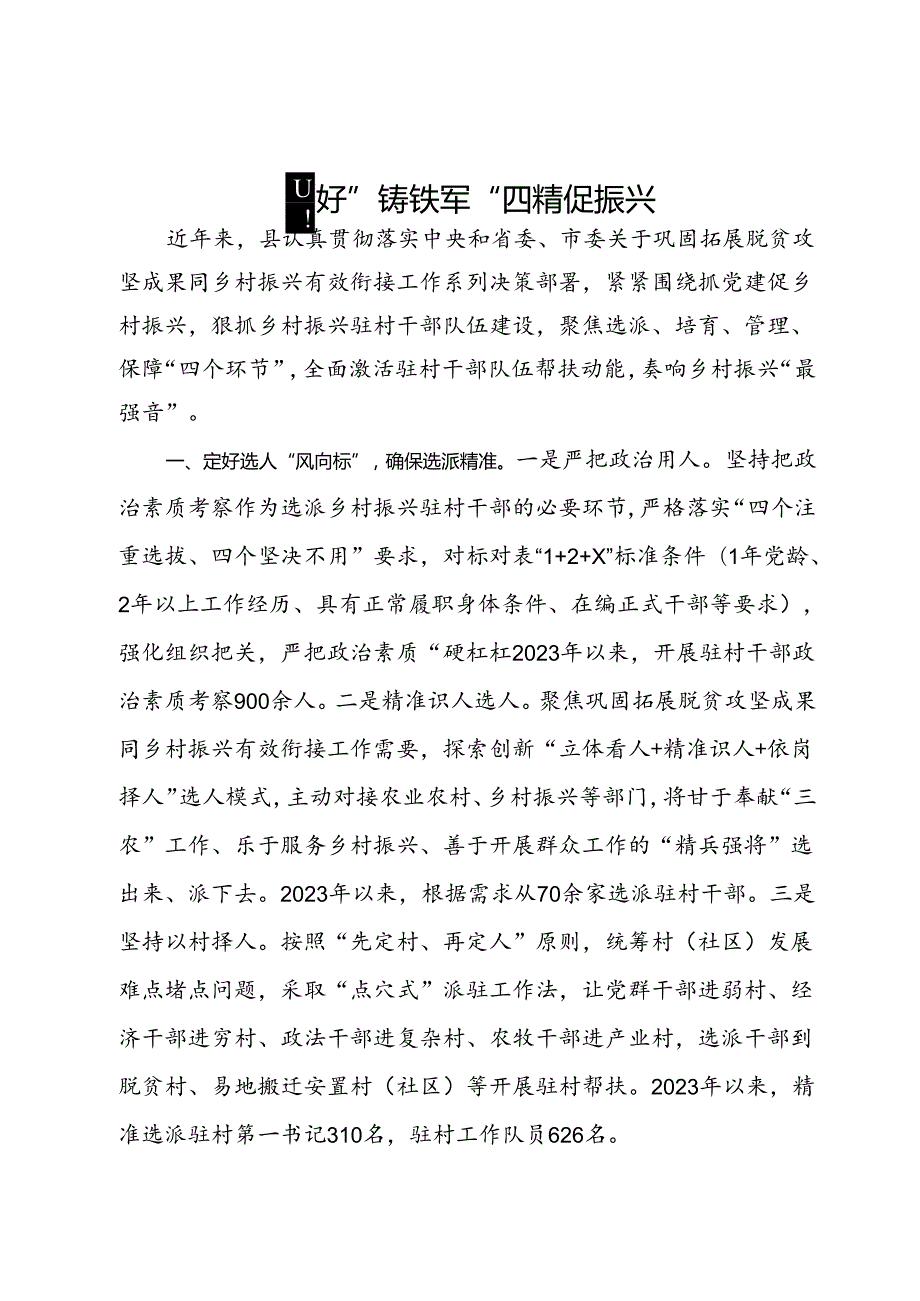 U
!
好”铸铁军“四精促振兴
近年来，县认真贯彻落实中央和省委、市委关于巩固拓展脱贫攻
坚成果同乡村振兴有效衔接工作系列决策部署，紧紧围绕抓党建促乡
村振兴，狠抓乡村振兴驻村干部队伍建设，聚焦选派、培育、管理、
保障“四个环节”，全面激活驻村干部队伍帮扶动能，奏响乡村振兴“最
强音”。
一、定好选人“风向标”，确保选派精准。一是严把政治用人。坚持把政
治素质考察作为选派乡村振兴驻村干部的必要环节，严格落实“四个注
重选拔、四个坚决不用”要求，对标对表“1+2+X”标准条件（1年党龄、
2年以上工作经历、具有正常履职身体条件、在编正式干部等要求），
强化组织把关，严把政治素质“硬杠杠2023年以来，开展驻村干部政
治素质考察900余人。二是精准识人选人。聚焦巩固拓展脱贫攻坚成果
同乡村振兴有效衔接工作需要，探索创新“立体看人+精准识人+依岗
择人”选人模式，主动对接农业农村、乡村振兴等部门，将甘于奉献“三
农”工作、乐于服务乡村振兴、善于开展群众工作的“精兵强将”选
出来、派下去。2023年以来，根据需求从70余家选派驻村干部。三是
坚持以村择人。按照“先定村、再定人”原则，统筹村（社区）发展
难点堵点问题，采取“点穴式”派驻工作法，让党群干部进弱村、经
济干部进穷村、政法干部进复杂村、农牧干部进产业村，选派干部到
脱贫村、易地搬迁安置村（社区）等开展驻村帮扶。2023年以来，精
准选派驻村第一书记310名，驻村工作队员626名。